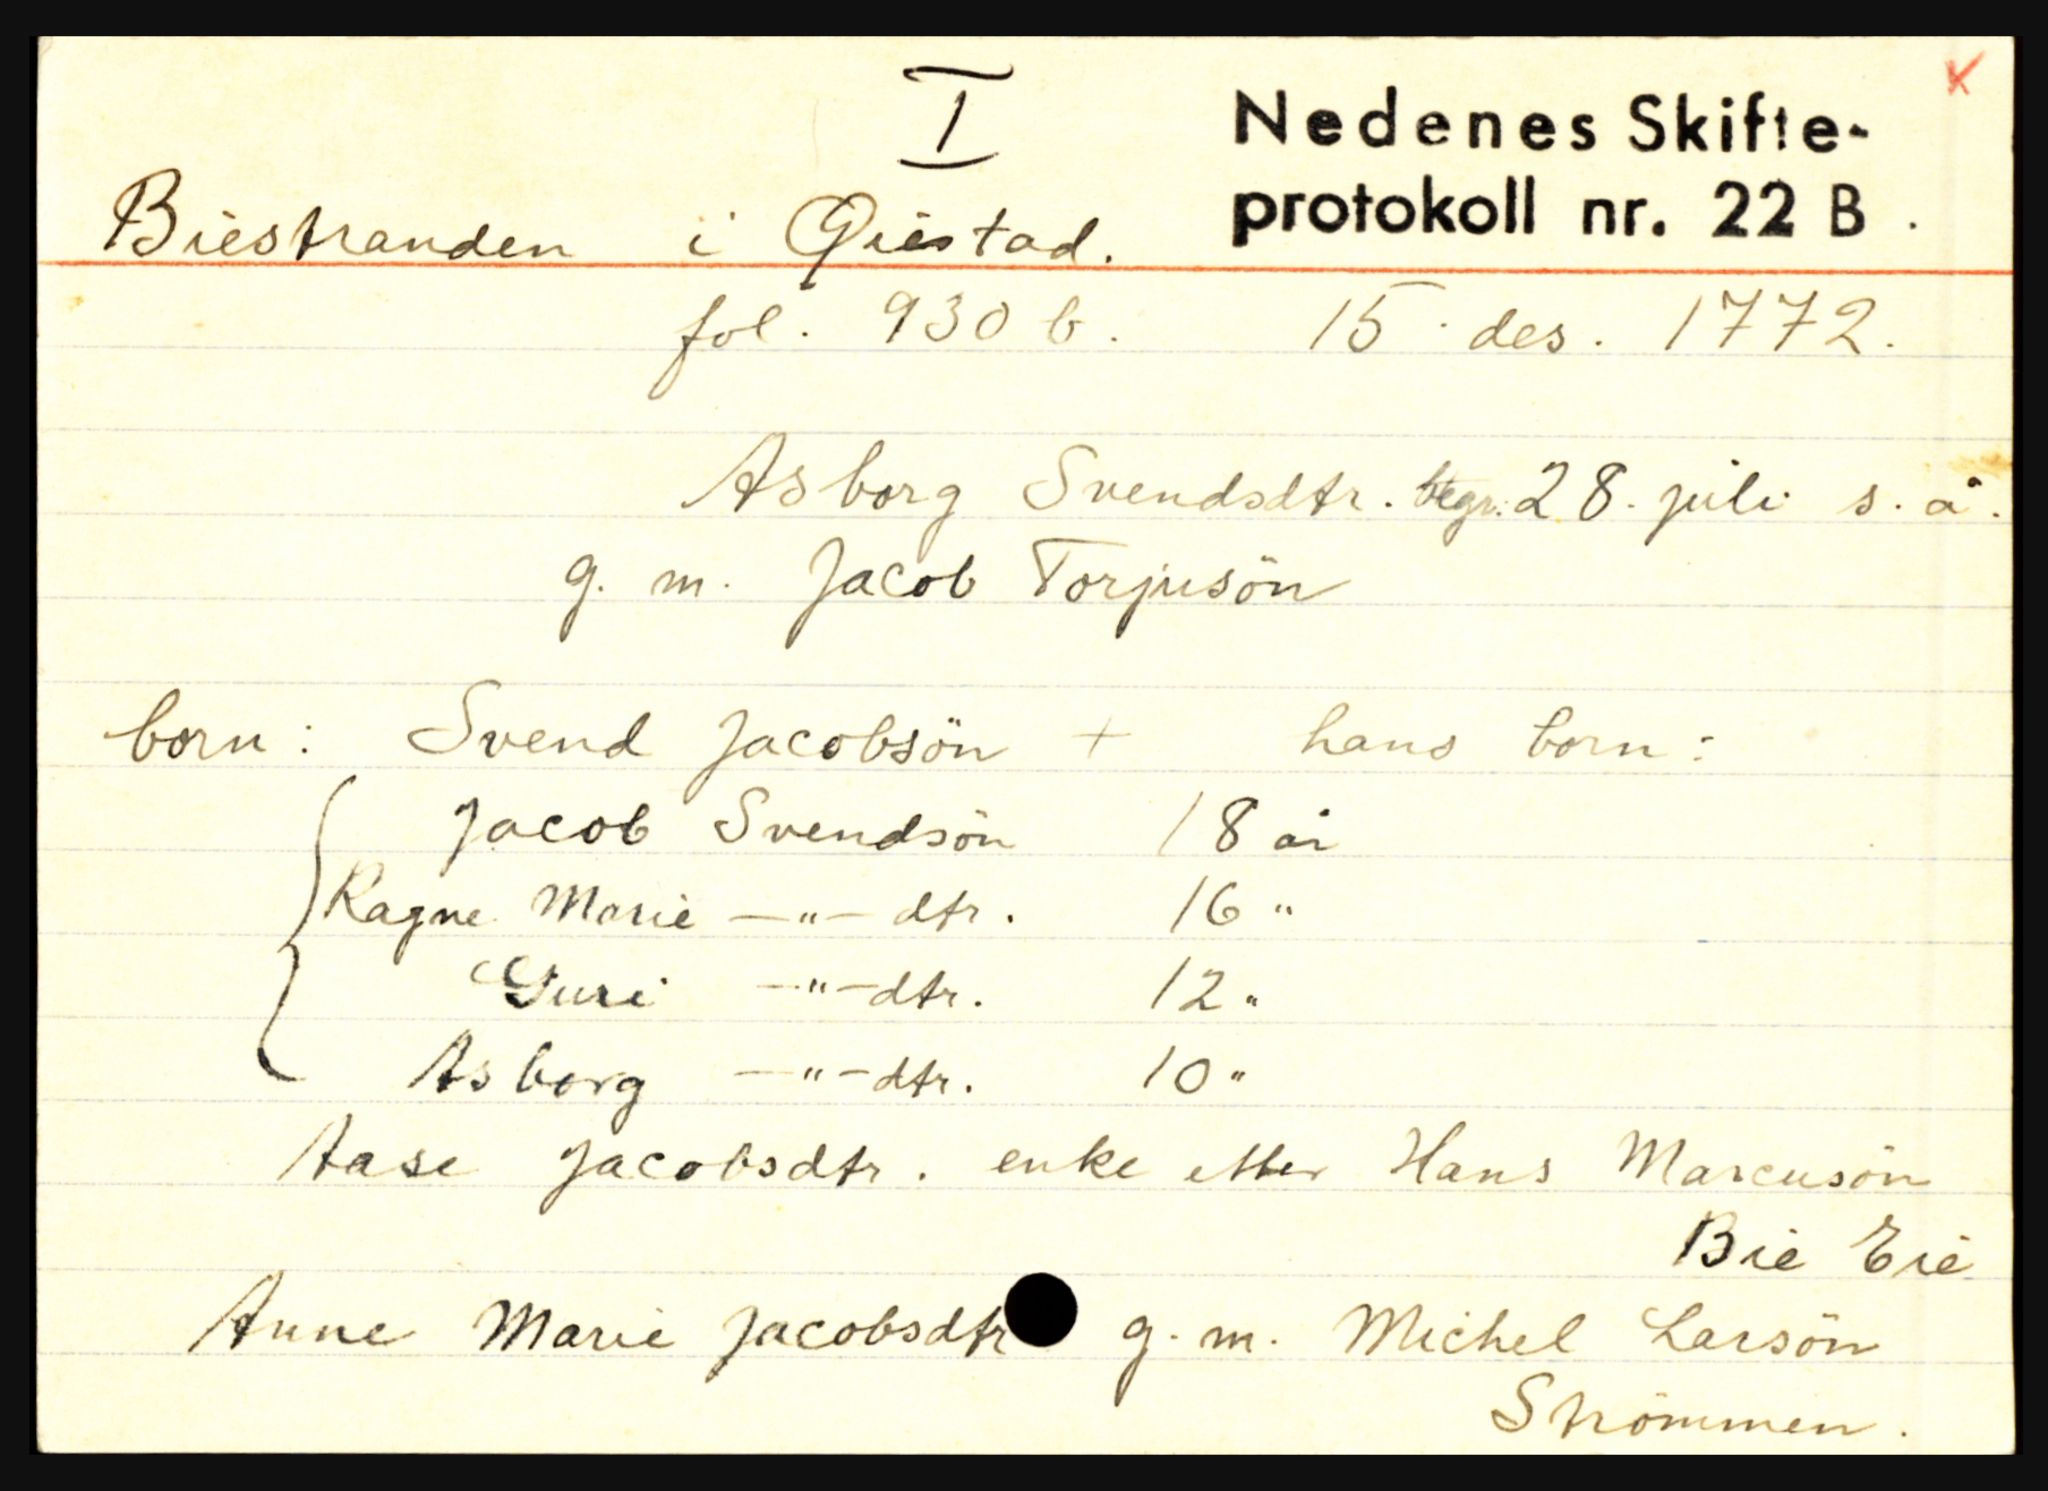 I
Nedenes Skifte-
protokoll nr. 22 B.
Biestranden i Øiestad.
fol. 930 b. 15. des. 1772.
Asborg Svendsdtr. begr. 28. juli s. å.
g. m. Jacob Torjusön
born: Svend Jacobsön + hans born:
Jacob Svendsön 18 år
Ragne Marie —"— dtr. 16 "
Guri —"— dtr. 12 "
Asborg —"— dtr. 10 "
Aase Jacobsdtr. enke etter Hans Marcusön
Bie Eie
Anne Marie Jacobsdtr g. m. Michel Larsön
Strömmen.